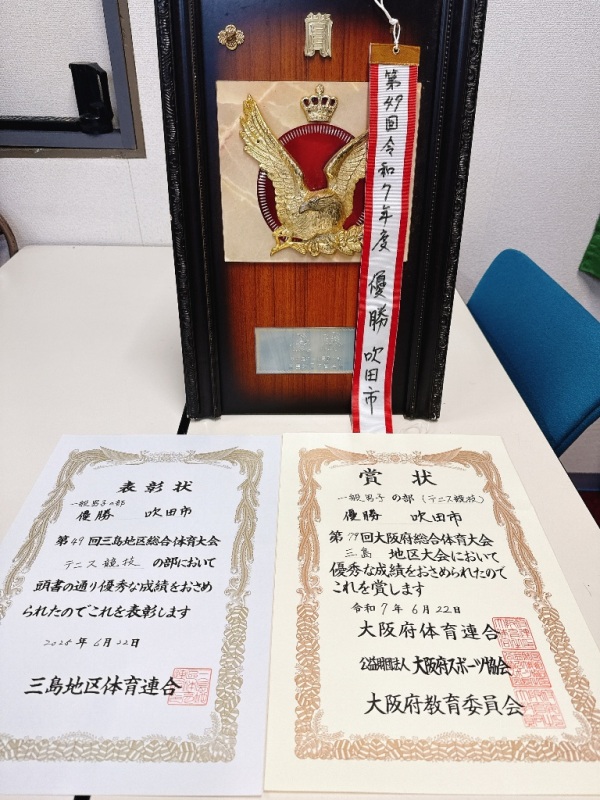 賞
第49回令和7年度 優勝 吹田市
表彰状
一般男子の部
優勝 吹田市
第49回三島地区総合体育大会
テニス競技 の部において
頭書の通り優秀な成績をおさめ
られたのでこれを表彰します
2025年6月22日
三島地区体育連合
賞状
一般男子の部(テニス競技)
優勝 吹田市
第79回大阪府総合体育大会
三島 地区大会において
優秀な成績をおさめられたので
これを賞します
令和7年6月22日
大阪府体育連合
公益財団法人 大阪府スポーツ協会
大阪府教育委員会